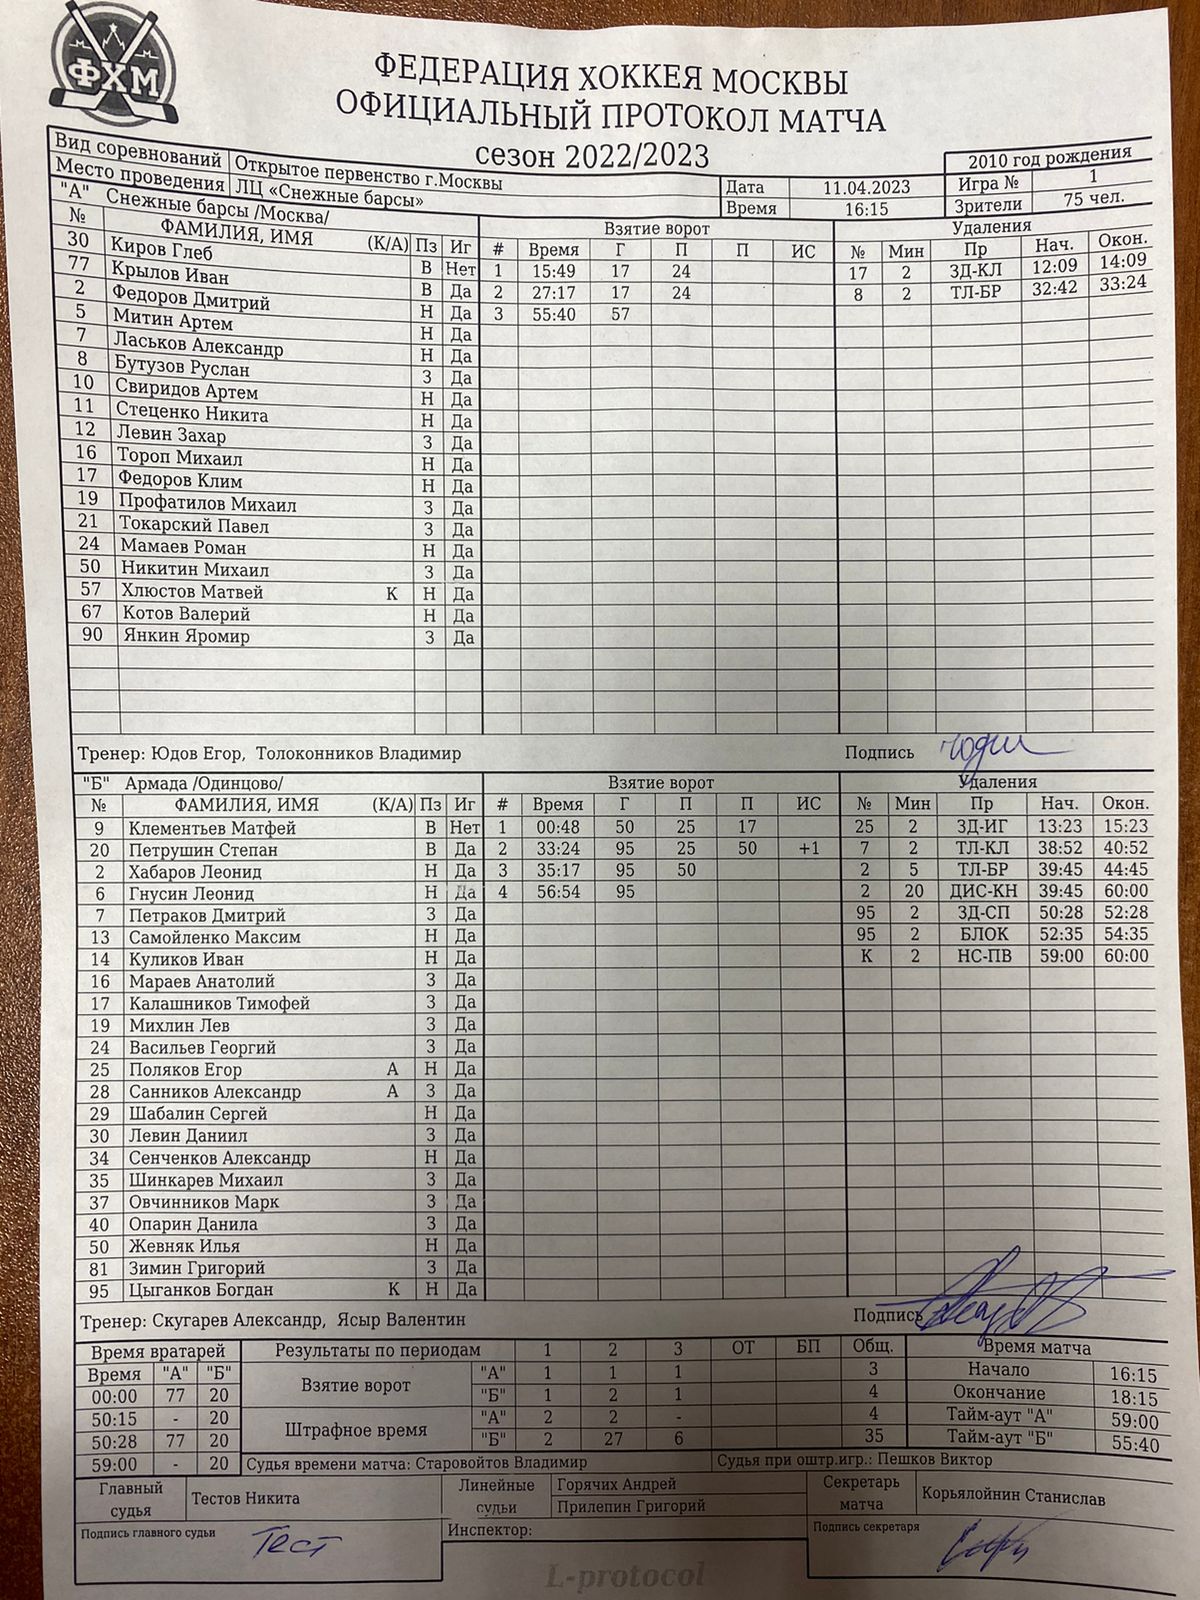 ФХМ
ФЕДЕРАЦИЯ ХОККЕЯ МОСКВЫ
ОФИЦИАЛЬНЫЙ ПРОТОКОЛ МАТЧА
сезон 2022/2023
2010 год рождения
Вид соревнований Открытое первенство г.Москвы
Дата 11.04.2023 Игра № 1
Место проведения ЛЦ «Снежные барсы»
Время 16:15 Зрители 75 чел.
"А" Снежные барсы /Москва/ Взятие ворот Удаления
№ ФАМИЛИЯ, ИМЯ (К/А) Пз Иг # Время Г П П ИС № Мин Пр Нач. Окон.
30 Киров Глеб В Нет 1 15:49 17 24 17 2 ЗД-КЛ 12:09 14:09
77 Крылов Иван В Да 2 27:17 17 24 8 2 ТЛ-БР 32:42 33:24
2 Федоров Дмитрий Н Да 3 55:40 57
5 Митин Артем Н Да
7 Ласьков Александр Н Да
8 Бутузов Руслан З Да
10 Свиридов Артем Н Да
11 Стеценко Никита Н Да
12 Левин Захар З Да
16 Тороп Михаил Н Да
17 Федоров Клим Н Да
19 Профатилов Михаил З Да
21 Токарский Павел З Да
24 Мамаев Роман Н Да
50 Никитин Михаил З Да
57 Хлюстов Матвей К Н Да
67 Котов Валерий Н Да
90 Янкин Яромир З Да
Тренер: Юдов Егор, Толоконников Владимир Подпись
"Б" Армада /Одинцово/ Взятие ворот Удаления
№ ФАМИЛИЯ, ИМЯ (К/А) Пз Иг # Время Г П П ИС № Мин Пр Нач. Окон.
9 Клементьев Матфей В Нет 1 00:48 50 25 17 25 2 ЗД-ИГ 13:23 15:23
20 Петрушин Степан В Да 2 33:24 95 25 50 +1 7 2 ТЛ-КЛ 38:52 40:52
2 Хабаров Леонид Н Да 3 35:17 95 50 2 5 ТЛ-БР 39:45 44:45
6 Гнусин Леонид Н Да 4 56:54 95 2 20 ДИС-КН 39:45 60:00
7 Петраков Дмитрий З Да 95 2 ЗД-СП 50:28 52:28
13 Самойленко Максим Н Да 95 2 БЛОК 52:35 54:35
14 Куликов Иван Н Да К 2 НС-ПВ 59:00 60:00
16 Мараев Анатолий З Да
17 Калашников Тимофей З Да
19 Михлин Лев З Да
24 Васильев Георгий З Да
25 Поляков Егор А Н Да
28 Санников Александр А З Да
29 Шабалин Сергей Н Да
30 Левин Даниил З Да
34 Сенченков Александр Н Да
35 Шинкарев Михаил З Да
37 Овчинников Марк З Да
40 Опарин Данила З Да
50 Жевняк Илья Н Да
81 Зимин Григорий З Да
95 Цыганков Богдан К Н Да
Тренер: Скугарев Александр, Ясыр Валентин Подпись
Время вратарей Результаты по периодам 1 2 3 ОТ БП Общ. Время матча
Время "А" "Б" Взятие ворот "А" 1 1 1 3 Начало 16:15
00:00 77 20 "Б" 1 2 1 4 Окончание 18:15
50:15 - 20 Штрафное время "А" 2 2 - 4 Тайм-аут "А" 59:00
50:28 77 20 "Б" 2 27 6 35 Тайм-аут "Б" 55:40
59:00 - 20 Судья времени матча: Старовойтов Владимир Судья при оштр.игр.: Пешков Виктор
Главный судья Тестов Никита Линейные судьи Горячих Андрей Секретарь матча Корьялойнин Станислав
Прилепин Григорий
Подпись главного судьи Тест Инспектор: Подпись секретаря
L-protocol